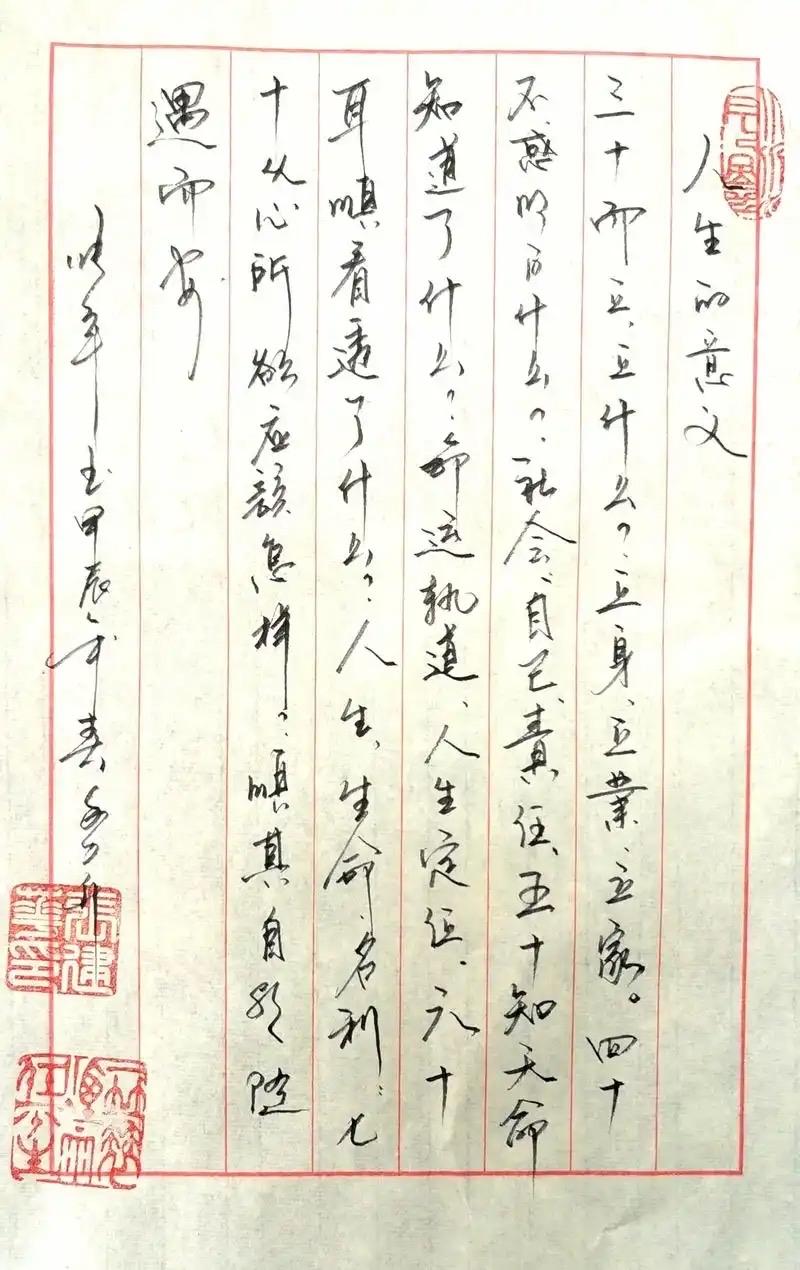 人生的意义
三十而立、立什么?立身、立业、立家。四十
不惑明白什么?社会、自己、责任、五十知天命
知道了什么?命运轨道、人生定位、六十
耳順看透了什么?人生、生命、名利;七
十从心所欲应該怎样。順其自然随
遇而安
甲辰年春